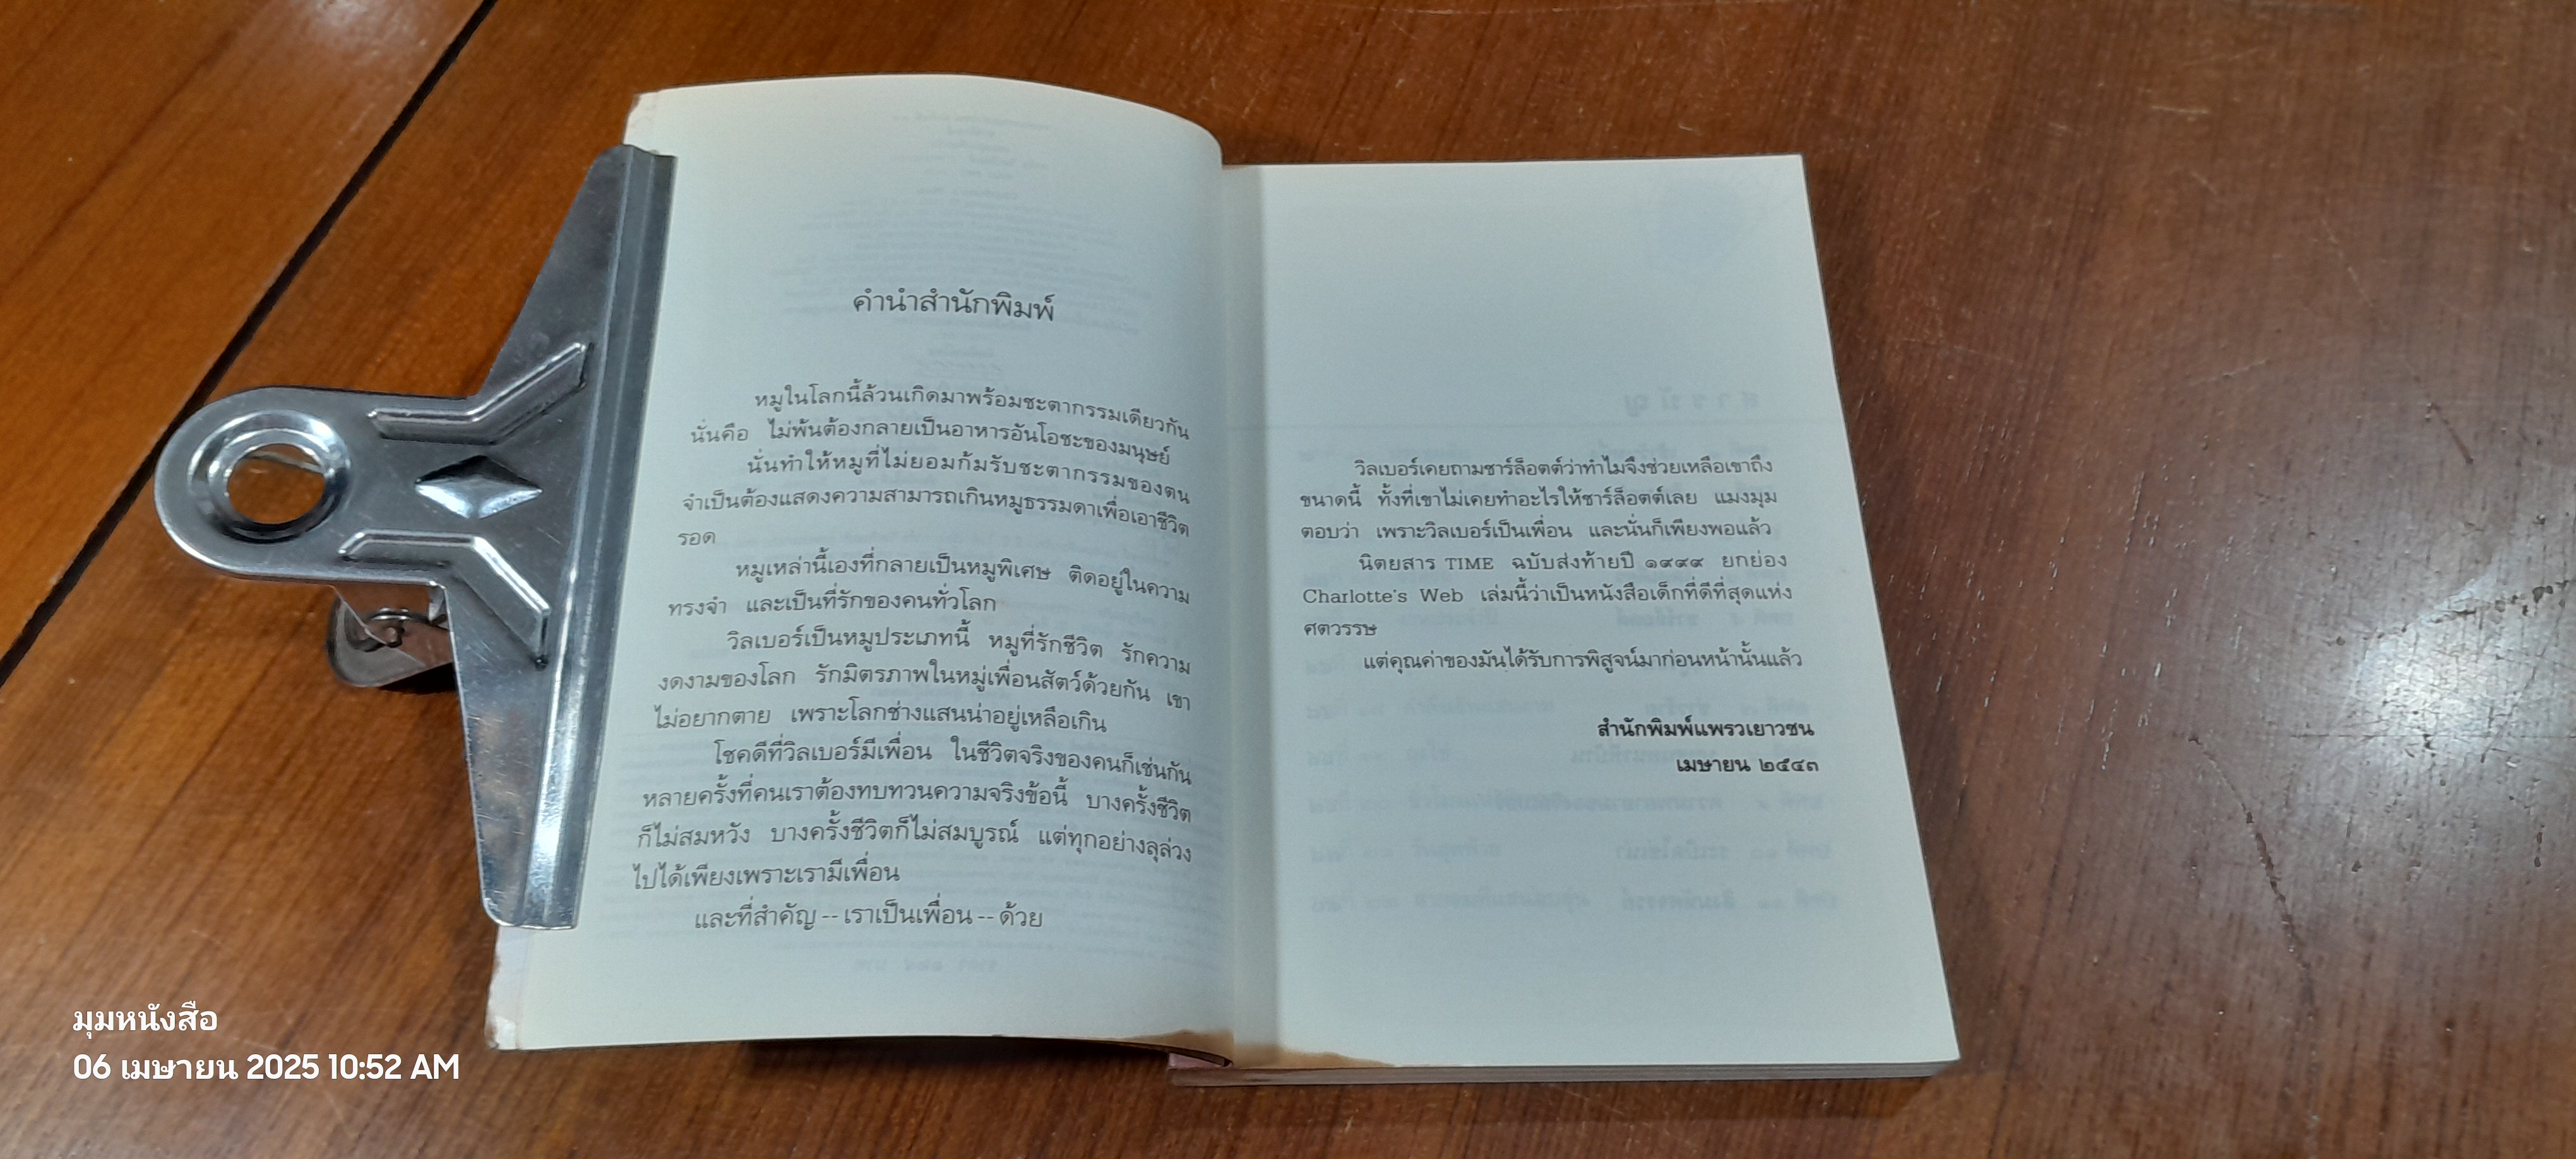 คำนำสำนักพิมพ์
หมูในโลกนี้ล้วนเกิดมาพร้อมชะตากรรมเดียวกัน
นั่นคือ ไม่พ้นต้องกลายเป็นอาหารอันโอชะของมนุษย์
นั่นทำให้หมูที่ไม่ยอมก้มรับชะตากรรมของตน
จำเป็นต้องแสดงความสามารถเกินหมูธรรมดาเพื่อเอาชีวิต
รอด
หมูเหล่านี้เองที่กลายเป็นหมูพิเศษ ติดอยู่ในความ
ทรงจำ และเป็นที่รักของคนทั่วโลก
วิลเบอร์เป็นหมูประเภทนี้ หมูที่รักชีวิต รักความ
งดงามของโลก รักมิตรภาพในหมู่เพื่อนสัตว์ด้วยกัน เขา
ไม่อยากตาย เพราะโลกช่างแสนน่าอยู่เหลือเกิน
โชคดีที่วิลเบอร์มีเพื่อน ในชีวิตจริงของคนก็เช่นกัน
หลายครั้งที่คนเราต้องทบทวนความจริงข้อนี้ บางครั้งชีวิต
ก็ไม่สมหวัง บางครั้งชีวิตก็ไม่สมบูรณ์ แต่ทุกอย่างลุล่วง
ไปได้เพียงเพราะเรามีเพื่อน
และที่สำคัญ -- เราเป็นเพื่อน -- ด้วย
วิลเบอร์เคยถามชาร์ล็อตต์ว่าทำไมจึงช่วยเหลือเขาถึง
ขนาดนี้ ทั้งที่เขาไม่เคยทำอะไรให้ชาร์ล็อตต์เลย แมงมุม
ตอบว่า เพราะวิลเบอร์เป็นเพื่อน และนั่นก็เพียงพอแล้ว
นิตยสาร TIME ฉบับส่งท้ายปี ๑๙๙๙ ยกย่อง
Charlotte's Web เล่มนี้ว่าเป็นหนังสือเด็กที่ดีที่สุดแห่ง
ศตวรรษ
แต่คุณค่าของมันได้รับการพิสูจน์มาก่อนหน้านั้นแล้ว
สำนักพิมพ์แพรวเยาวชน
เมษายน ๒๕๔๓
มุมหนังสือ
06 เมษายน 2025 10:52 AM